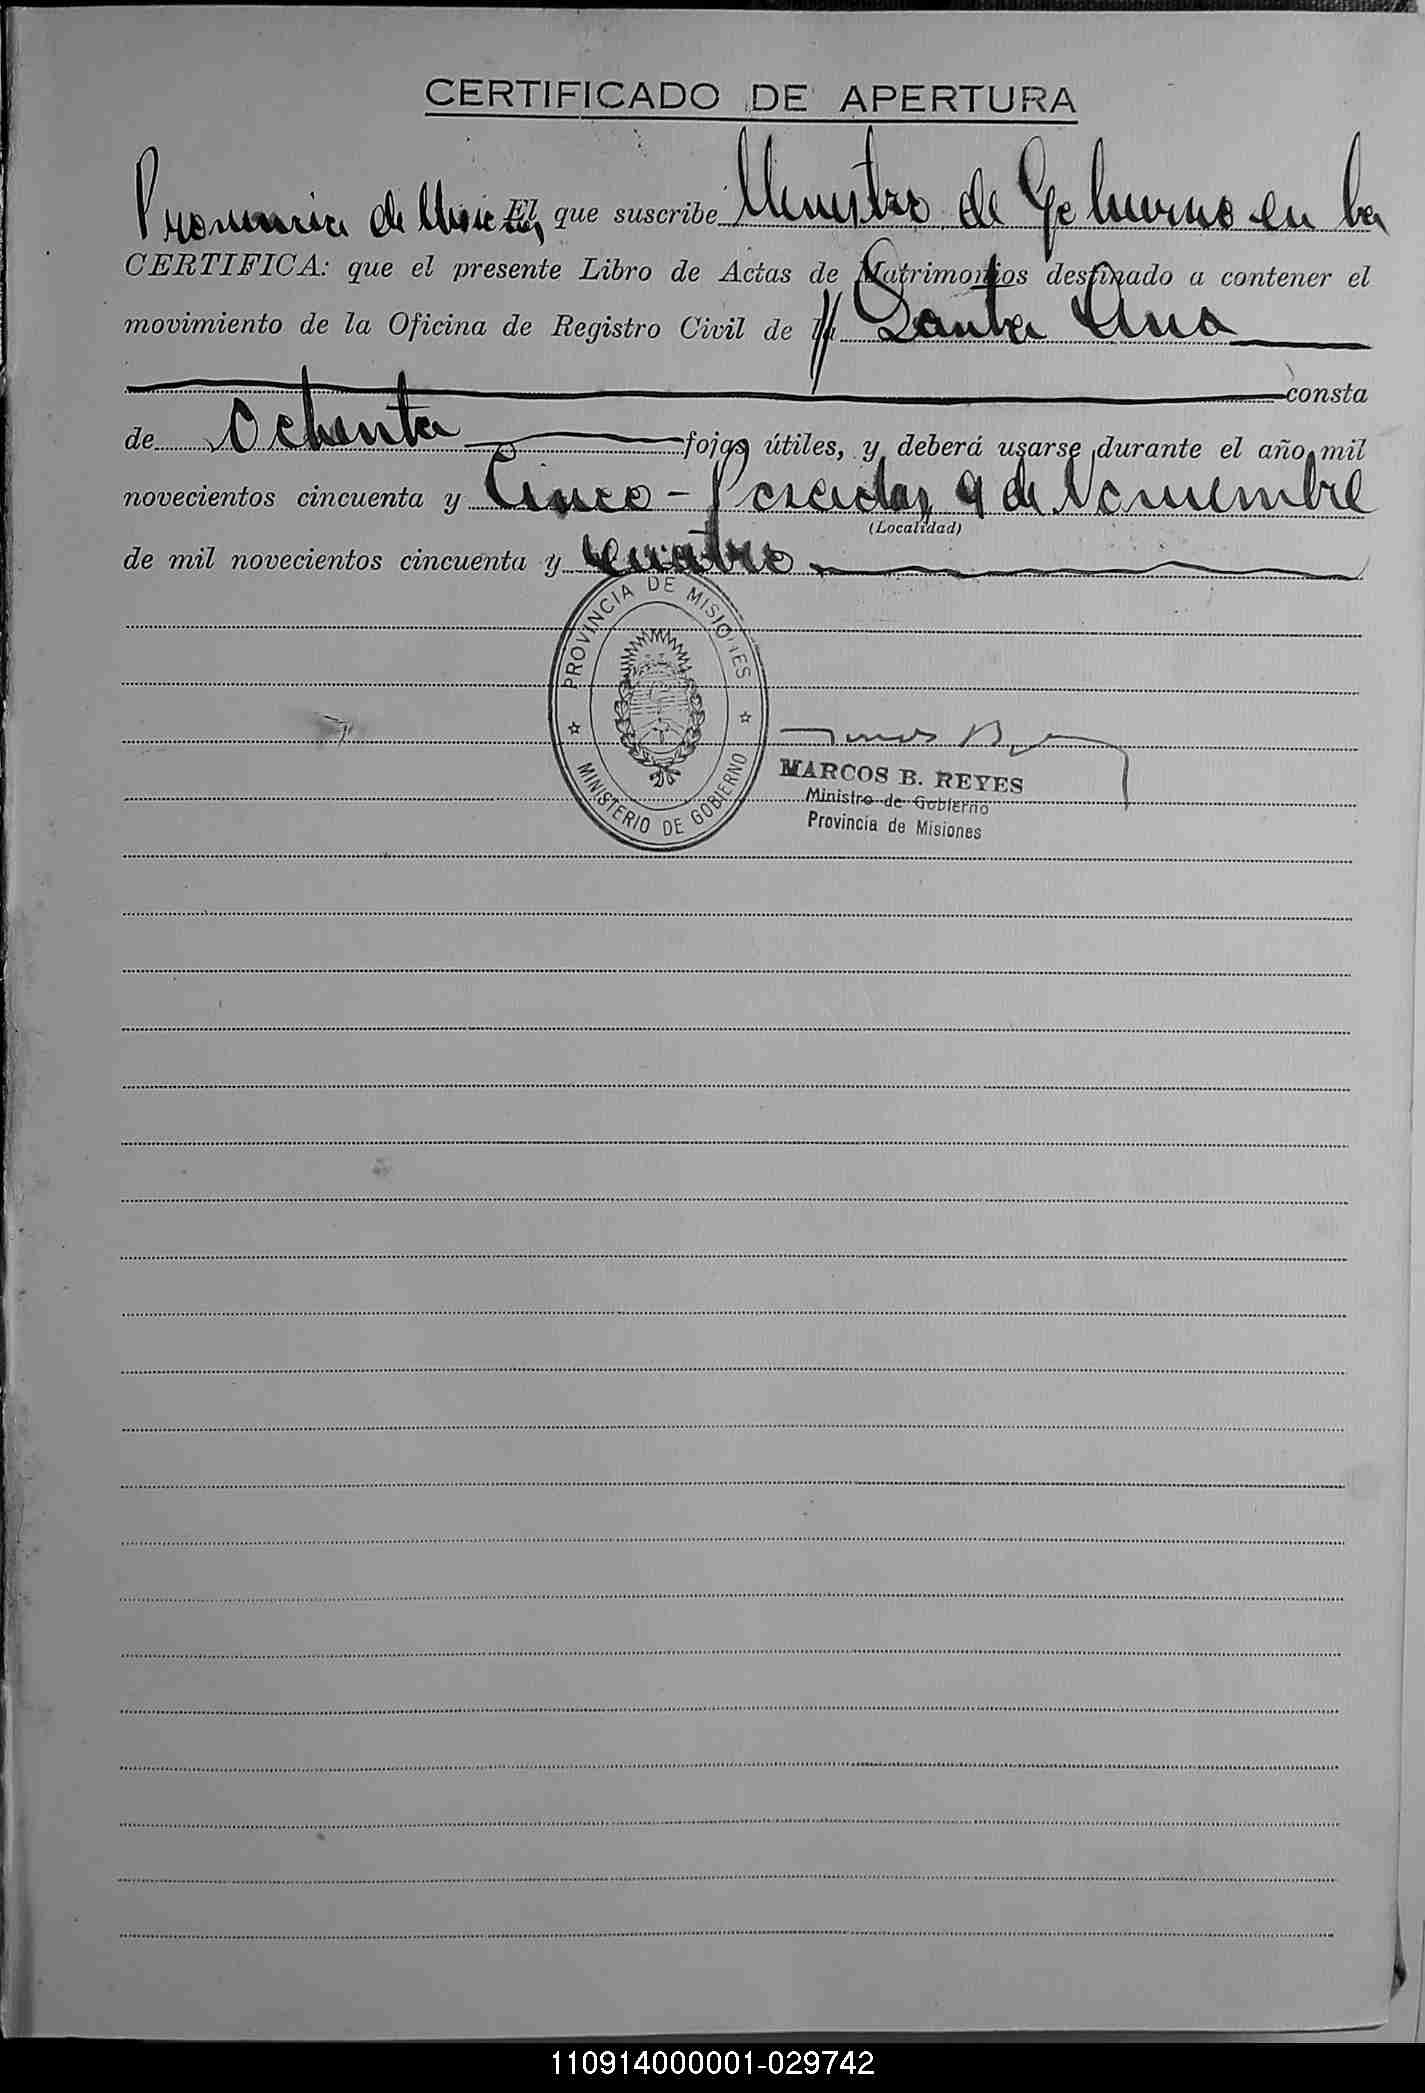 CERTIFICADO DE APERTURA
El que suscribe Ministro de Gobierno en la
Provincia de Misiones
CERTIFICA: que el presente Libro de Actas de Matrimonios destinado a contener el
movimiento de la Oficina de Registro Civil de Santa Ana
consta
de Ochenta fojas útiles, y deberá usarse durante el año mil
novecientos cincuenta y Cinco - Posadas, 9 de Noviembre
(Localidad)
de mil novecientos cincuenta y cuatro
PROVINCIA DE MISIONES
MINISTERIO DE GOBIERNO
MARCOS B. REYES
Ministro de Gobierno
Provincia de Misiones
110914000001-029742